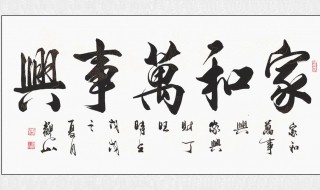 家和萬事興
家和
萬事
興
家興
財丁
旺
時在
戊戌
之
夏月